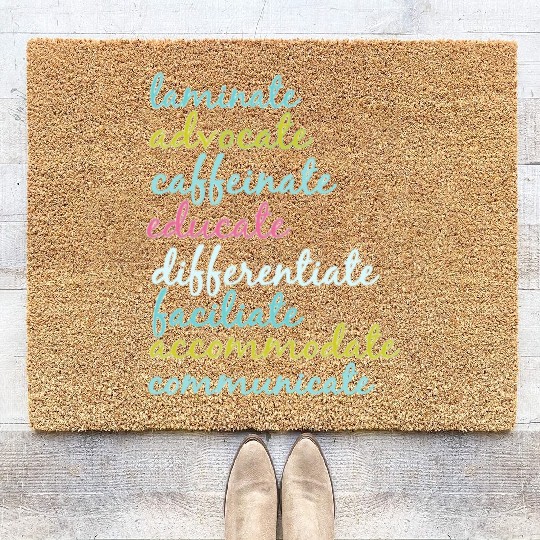 laminate
advocate
caffeinate
educate
differentiate
faciliate
accommodate
communicate